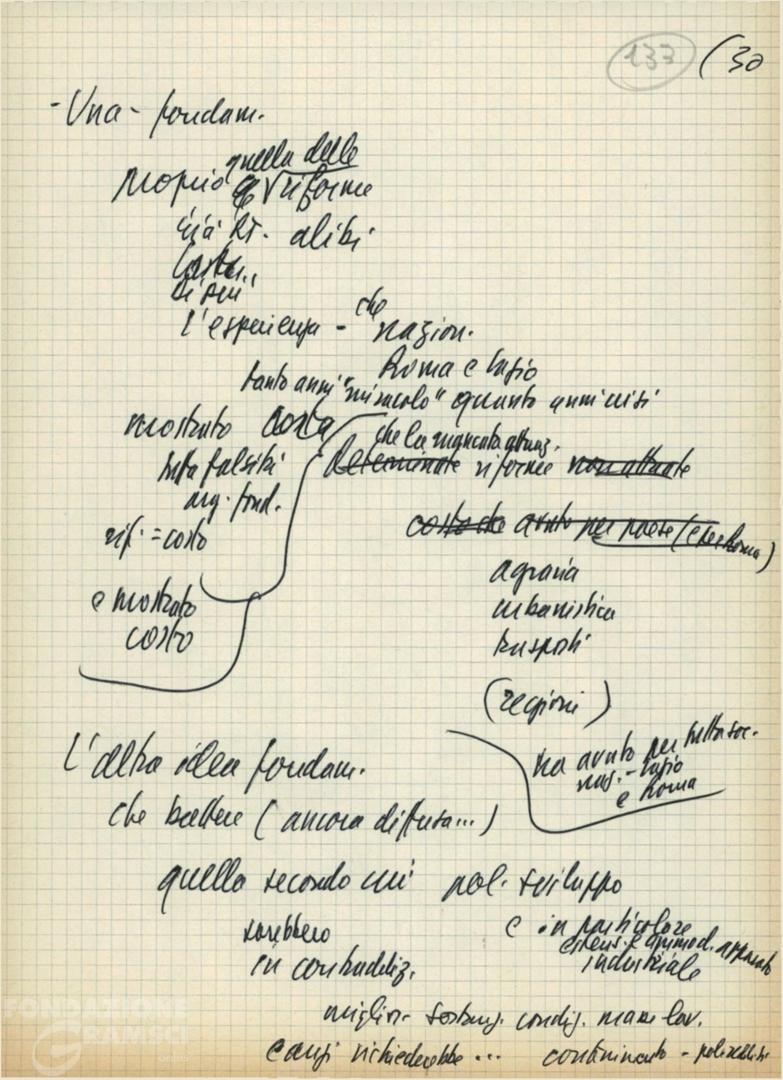 133 (30
- Una - fondam.
quella delle
proprio riforme
alibi
di più
l'esperienza - che nazion.
Roma e Lazio
tanto anni "miracolo" quanto anni crisi
mostrato costa
che la mancata attuaz.
tutta falsità determinate riforme non attuate
arg. fond.
rif. = costo
costo che avuto per paese (e per Roma)
agraria
e mostrato urbanistica
costo trasporti
(regioni)
L'altra idea fondam.
ha avuto per tutta soc.
naz. - Lazio
e Roma
che battere (ancora diffusa...)
quella secondo cui pol. sviluppo
sarebbero e in particolare
apparato
in contraddiz. industriale
miglior. sostanz. condiz. masse lav.
e anzi richiederebbe ... contenimento -
FONDAZIONE
GRAMSCI